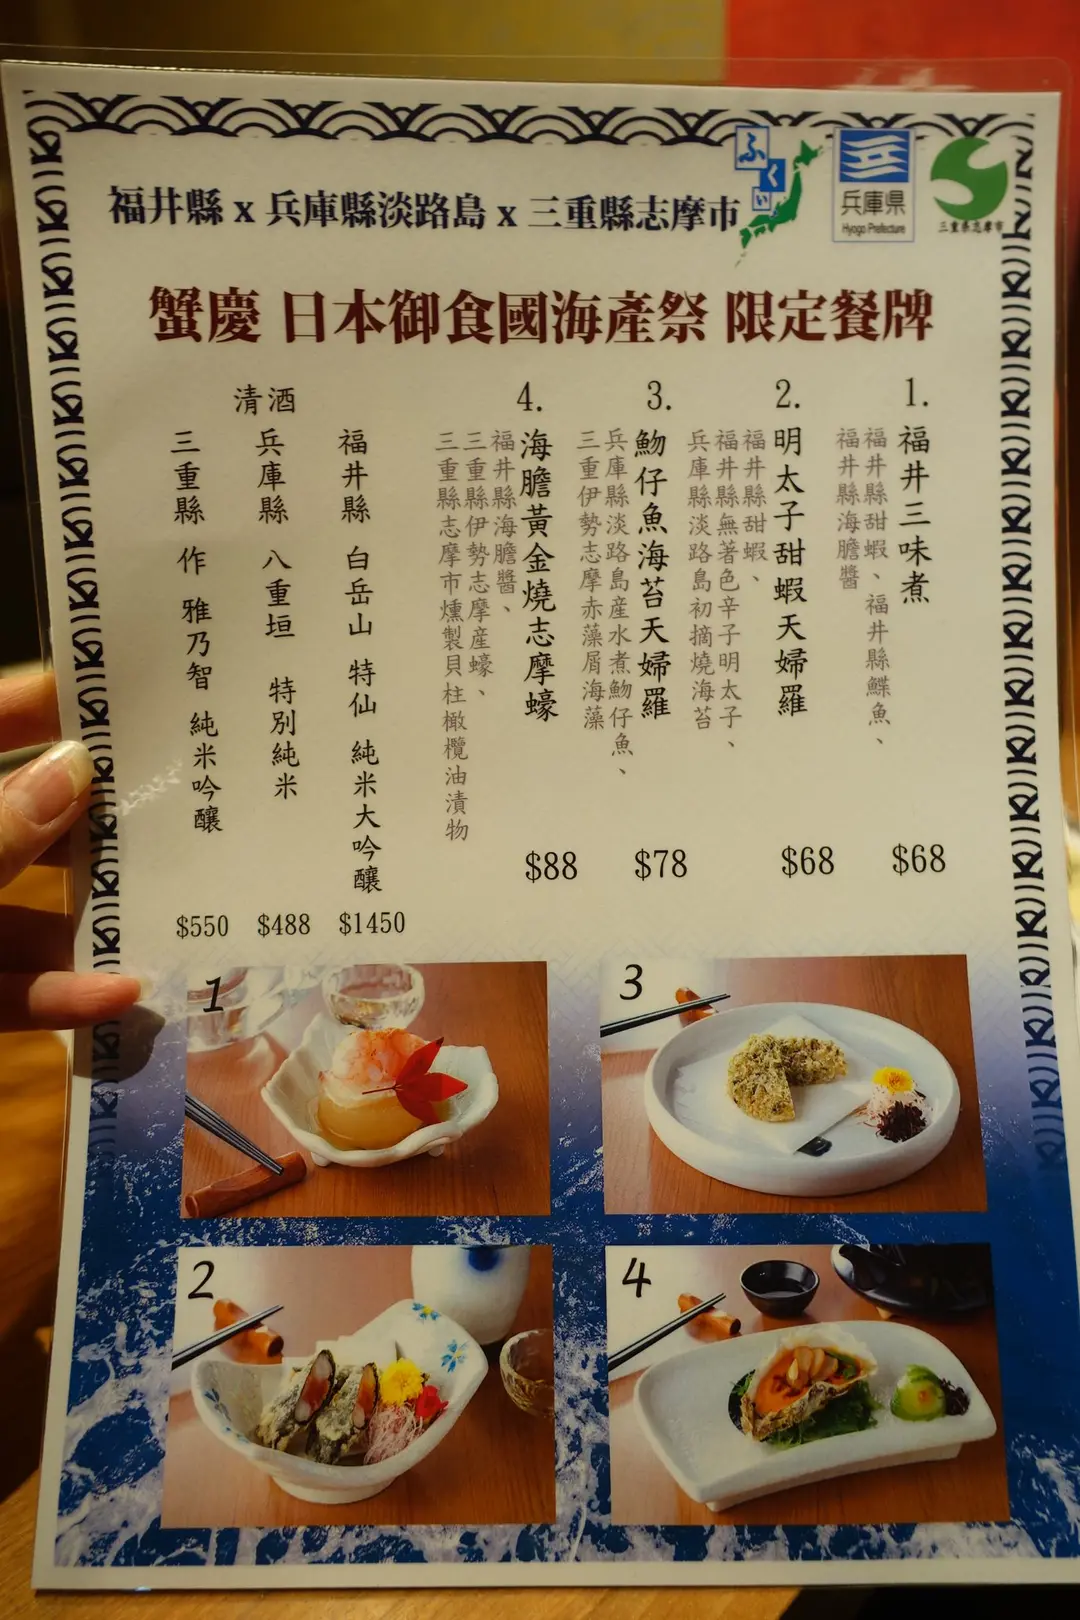 福井縣 x 兵庫縣淡路島 x 三重縣志摩市
ふくい
兵庫県
Hyogo Prefecture
三重県志摩市
蟹慶 日本御食國海產祭 限定餐牌
1.
福井三味煮
福井縣甜蝦、福井縣鰈魚、
福井縣海膽醬
$68
2.
明太子甜蝦天婦羅
福井縣甜蝦、
福井縣無著色辛子明太子、
兵庫縣淡路島初摘燒海苔
$68
3.
魩仔魚海苔天婦羅
兵庫縣淡路島産水煮魩仔魚、
三重伊勢志摩赤藻屑海藻
$78
4.
海膽黃金燒志摩蠔
福井縣海膽醬、
三重縣伊勢志摩産蠔、
三重縣志摩市燻製貝柱橄欖油漬物
$88
清酒
福井縣 白岳山 特仙 純米大吟釀
$1450
兵庫縣 八重垣 特別純米
$488
三重縣 作 雅乃智 純米吟釀
$550
1
3
2
4